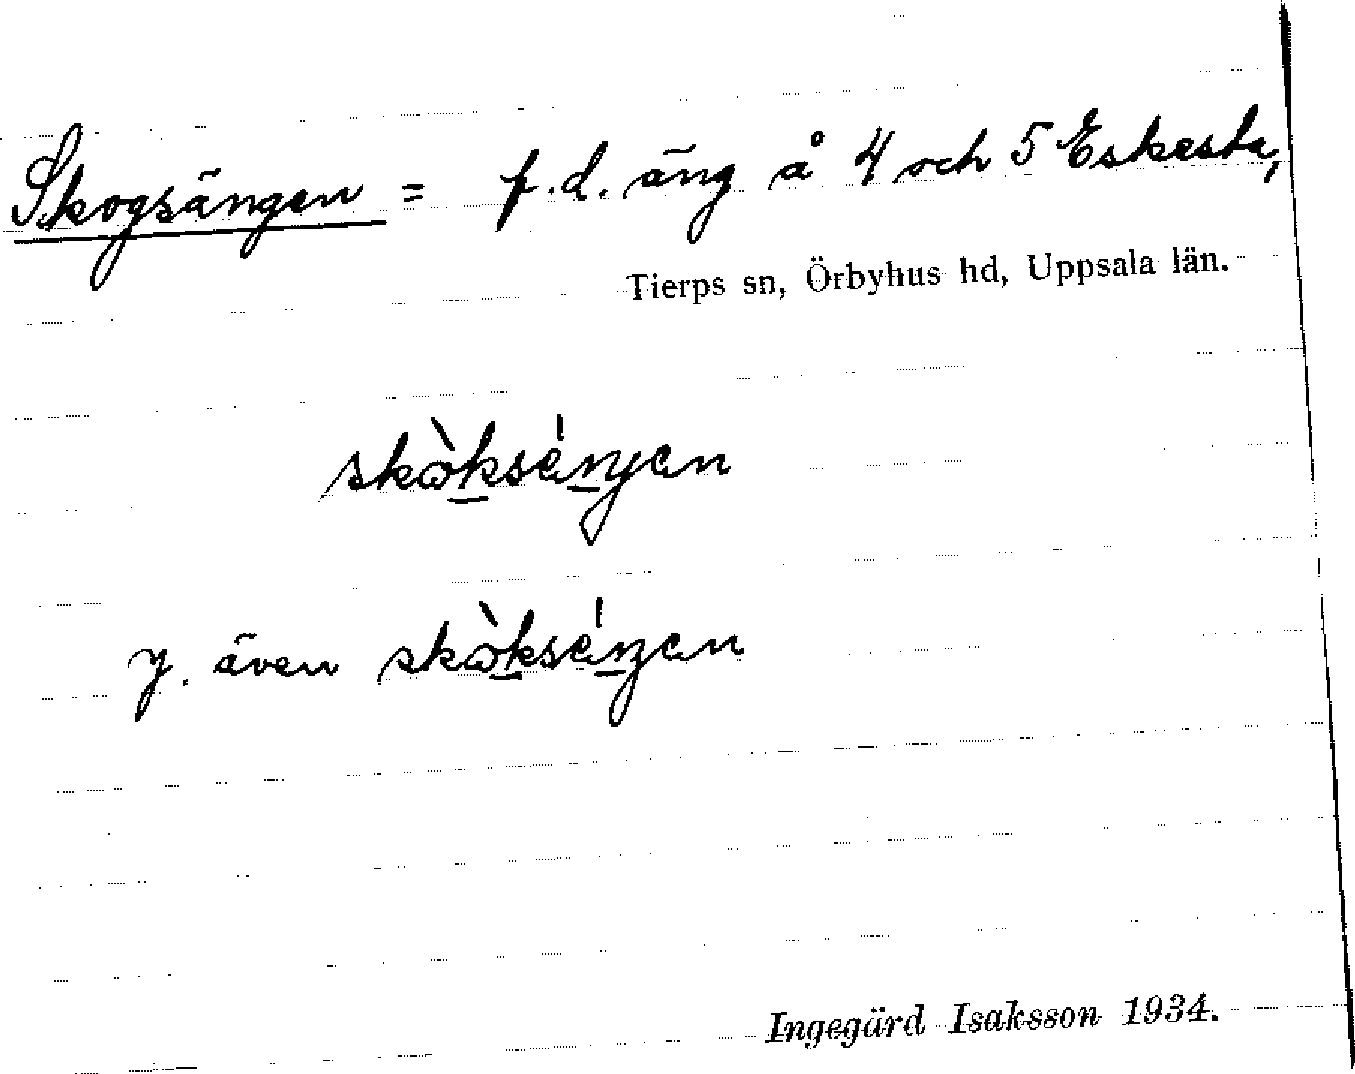 Skogsängen = f.d. äng å 4 och 5 Eskesta,
Tierps sn, Örbyhus hd, Uppsala län.
y. även
Ingegärd Isaksson 1934.